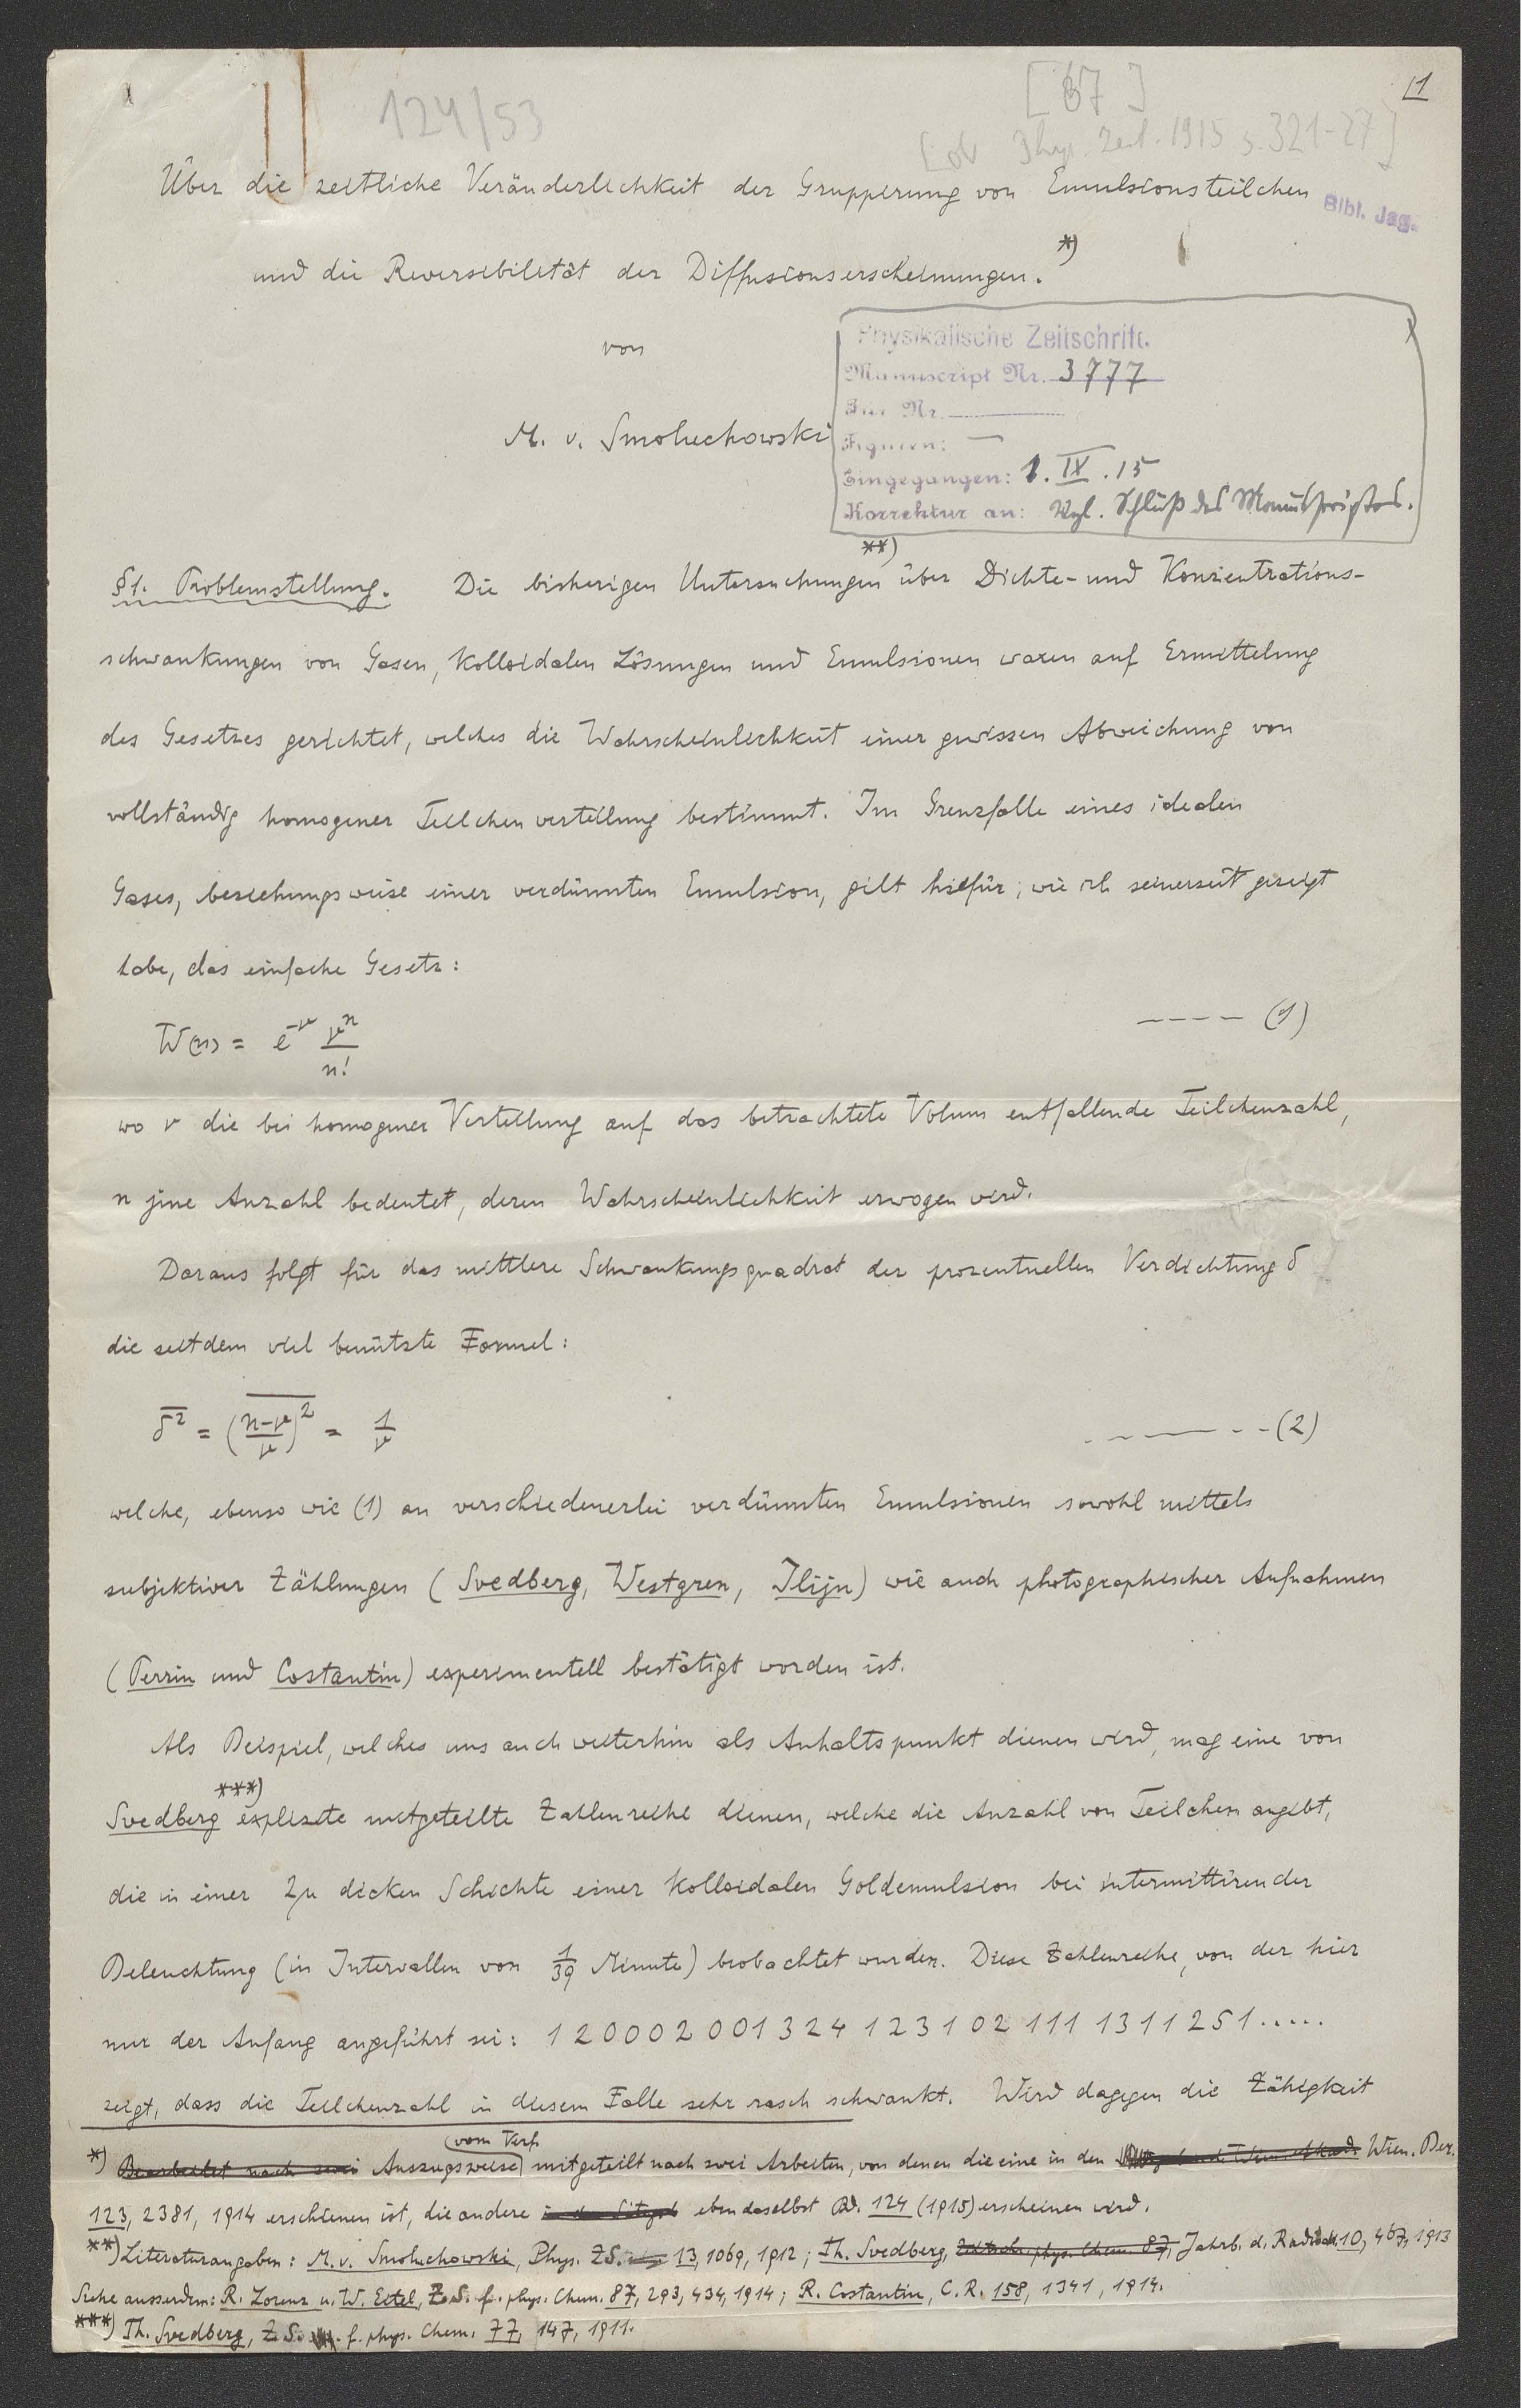 11
124/53
[67]
Phys. Zeit. 1915 s. 321-27]
Über die zeitliche Veränderlichkeit der Gruppirung von Emulsionsteilchen
Bibl. Jag.
und die Reversibilität der Diffusionserscheinungen. *)
von
M. v. Smoluchowski
Physikalische Zeitschrift.
Manuscript Nr. 3777
Für Nr.
Figuren: —
Eingegangen: 1. IX. 15
Korrektur an: Vgl. Schluß des Manuskriptes.
§1. Problemstellung. Die bisherigen Untersuchungen **) über Dichte- und Konzentrations-
schwankungen von Gasen, kolloidalen Lösungen und Emulsionen waren auf Ermittelung
des Gesetzes gerichtet, welches die Wahrscheinlichkeit einer gewissen Abweichung von
vollständig homogener Teilchenverteilung bestimmt. Im Grenzfalle eines idealen
Gases, beziehungsweise einer verdünnten Emulsion, gilt hiefür, wie ich seinerzeit gezeigt
habe, das einfache Gesetz:
W(n) = e^{-ν} ν^n / n! ---- (1)
wo ν die bei homogener Verteilung auf das betrachtete Volum entfallende Teilchenzahl,
n jene Anzahl bedeutet, deren Wahrscheinlichkeit erwogen wird.
Daraus folgt für das mittlere Schwankungsquadrat der prozentuellen Verdichtung δ
die seitdem viel benützte Formel:
δ² = ((n-ν)/ν)² = 1/ν ------- (2)
welche, ebenso wie (1) an verschiedenerlei verdünnten Emulsionen sowohl mittels
subjektiver Zählungen (Svedberg, Westgren, Ilijn) wie auch photographischer Aufnahmen
(Perrin und Costantin) experimentell bestätigt worden ist.
Als Beispiel, welches uns auch weiterhin als Anhaltspunkt dienen wird, mag eine von
Svedberg ***) explizite mitgeteilte Zahlenreihe dienen, welche die Anzahl von Teilchen angibt,
die in einer 2μ dicken Schichte einer kolloidalen Goldemulsion bei intermittirender
Beleuchtung (in Intervallen von 1/39 Minute) beobachtet wurden. Diese Zahlenreihe, von der hier
nur der Anfang angeführt sei: 1 2 0 0 0 2 0 0 1 3 2 4 1 2 3 1 0 2 1 1 1 1 3 1 1 2 5 1 .....
zeigt, dass die Teilchenzahl in diesem Falle sehr rasch schwankt. Wird dagegen die Zähigkeit
*) Bearbeitet nach zwei Auszugsweise vom Verf. mitgeteilt nach zwei Arbeiten, von denen die eine in den Wien. Ber.
123, 2381, 1914 erschienen ist, die andere ebendaselbst Bd. 124 (1915) erscheinen wird.
**) Literaturangaben: M. v. Smoluchowski, Phys. ZS. 13, 1069, 1912; Th. Svedberg, Zeitschr. phys. Chem. 87, Jahrb. d. Radioakt. 10, 467, 1913
Siehe ausserdem: R. Lorenz u. W. Eitel, Z.S. f. phys. Chem. 87, 293, 434, 1914; R. Costantin, C.R. 158, 1341, 1914.
***) Th. Svedberg, Z.S. f. phys. Chem. 77, 147, 1911.